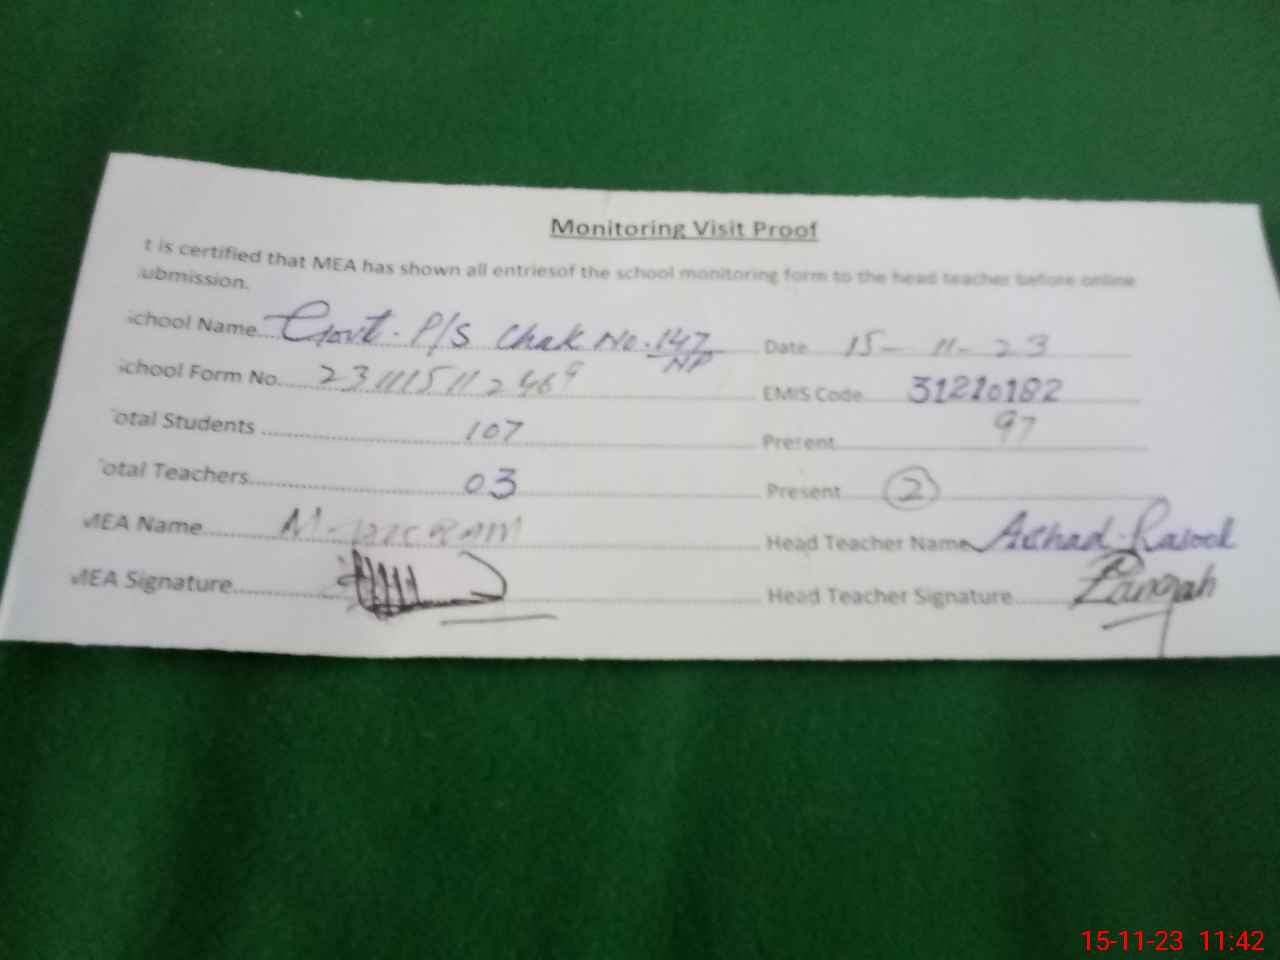 Monitoring Visit Proof
t is certified that MEA has shown all entriesof the school monitoring form to the head teacher before online
ubmission.
chool Name Govt. P/S Chak No. 147/NP Date 15-11-23
chool Form No. 231115112469 EMIS Code 31210182
otal Students 107 Present 97
otal Teachers 03 Present 2
MEA Name M. Head Teacher Name Rasool
MEA Signature Head Teacher Signature
15-11-23 11:42